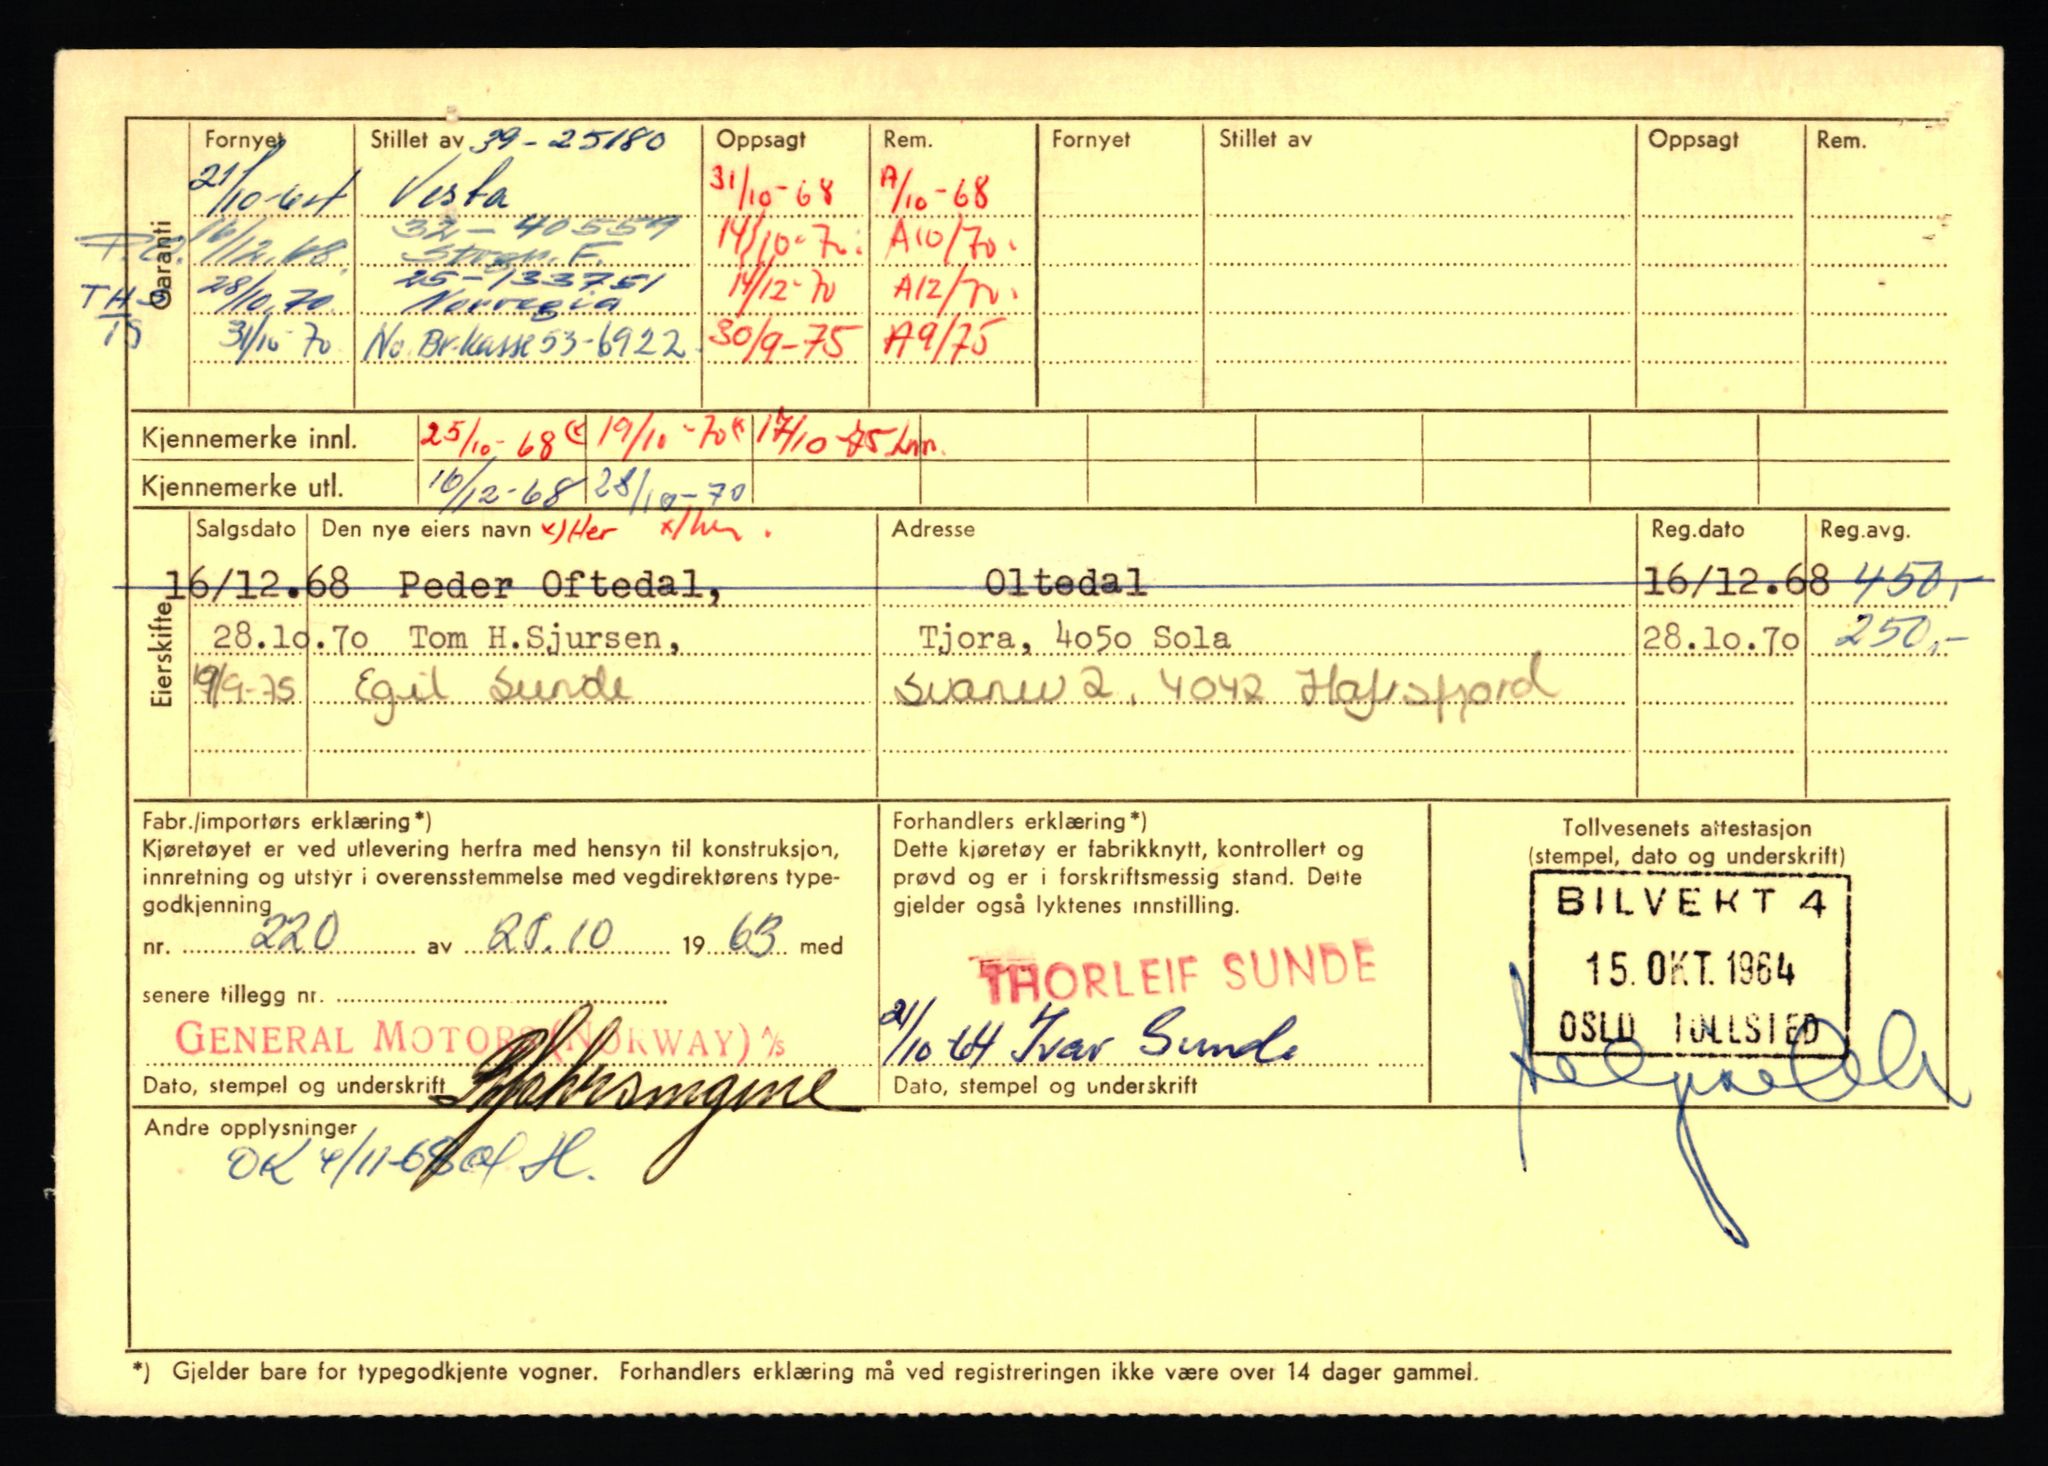 Garanti
Fornyet Stillet av 39-25180 Oppsagt Rem. Fornyet Stillet av Oppsagt Rem.
21/10-64 Vesta 31/10-68 A/10-68
32-40559
16/12.68. 14/10-70. A10/70.
25-133751
28/10.70. Norvegia 14/12-70 A12/70.
31/10-70 No. Br.kasse 53-6922. 30/9-75 A9/75
Kjennemerke innl. 25/10-68 19/10-70 17/10-75
Kjennemerke utl. 16/12-68 28/10-70
Eierskifte
Salgsdato Den nye eiers navn x)Her Adresse Reg.dato Reg.avg.
16/12.68 Peder Oftedal, Oltedal 16/12.68 450,-
28.10.70 Tom H.Sjursen, Tjora, 4050 Sola 28.10.70 250,-
9/9-75 Egil Sunde Svanev 2, 4042 Hafrsfjord
Fabr./importørs erklæring*)
Kjøretøyet er ved utlevering herfra med hensyn til konstruksjon,
innretning og utstyr i overensstemmelse med vegdirektørens type-
godkjenning
nr. 220 av 28.10 1963 med
senere tillegg nr.
GENERAL MOTORS (NORWAY) A/S
Dato, stempel og underskrift
Forhandlers erklæring*)
Dette kjøretøy er fabrikknytt, kontrollert og
prøvd og er i forskriftsmessig stand. Dette
gjelder også lyktenes innstilling.
THORLEIF SUNDE
21/10-64 Ivar Sunde
Dato, stempel og underskrift
Tollvesenets attestasjon
(stempel, dato og underskrift)
BILVEKT 4
15. OKT. 1964
OSLO TOLLSTED
Andre opplysninger
OK 4/11-68 H.
*) Gjelder bare for typegodkjente vogner. Forhandlers erklæring må ved registreringen ikke være over 14 dager gammel.